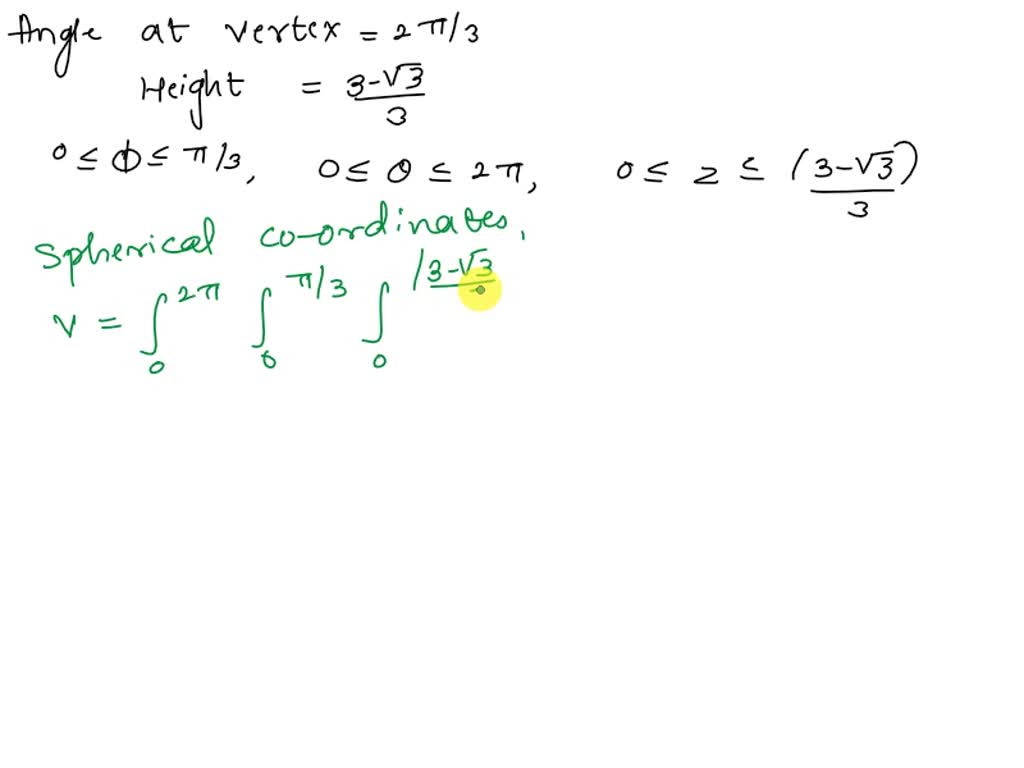 Angle at vertex = 2π/3
Height = (3-√3)/3
0 ≤ Φ ≤ π/3, 0 ≤ θ ≤ 2π, 0 ≤ z ≤ (3-√3)/3
Spherical co-ordinates,
V = ∫₀^2π ∫₀^π/3 ∫₀^(3-√3